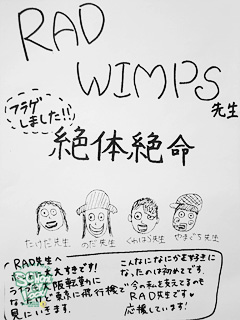 RAD
WIMPS
先生
フラゲ
しました!!
絶体絶命
たけだ先生
のだ先生
くわはら先生
やまぐち先生
RAD先生へ
大大すきです!
ライブ 大阪転勤に
東京に飛行機で
見にいきます。
こんなになにかを好きに
なったのは初めてです。
今の私を支えてるの
RAD先生です♡
応援しています!